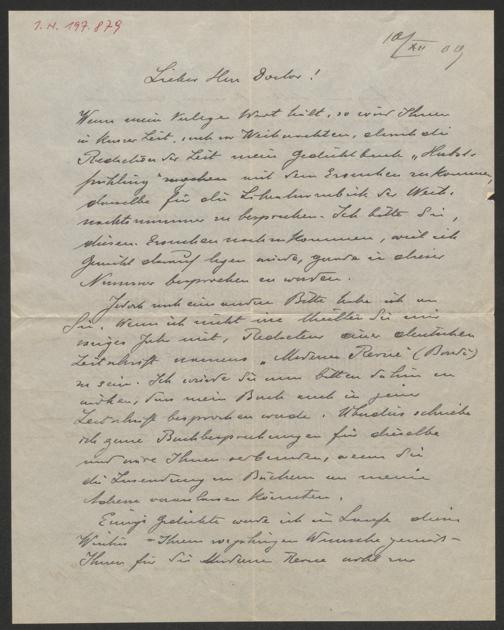 I.N. 197.879
10/XII 09
Lieber Herr Doctor!
Wenn mein Verleger Wort hält, so wird Ihnen
in kurzer Zeit, noch vor Weihnachten, durch die
Redaction der Zeit mein Gedichtbuch "Herbst-
frühling" mit dem Ersuchen zukommen,
dasselbe für die Literaturrubrik der Weih-
nachtsnummer zu besprechen. Ich bitte Sie,
diesem Ersuchen nachzukommen, weil ich
Gewicht darauf legen würde, gerade in dieser
Nummer besprochen zu werden.
Jedoch noch eine andere Bitte habe ich an
Sie. Wenn ich nicht irre theilten Sie mir
voriges Jahr mit, Redacteur einer deutschen
Zeitschrift namens "Moderne Revue" ( )
zu sein. Ich würde Sie nun bitten dahin zu
wirken, dass mein Buch auch in jener
Zeitschrift besprochen werde. Überdies schriebe
ich gerne Buchbesprechungen für dieselbe
und wäre Ihnen verbunden, wenn Sie
die Zusendung von Büchern an meine
Adresse veranlassen könnten.
Einige Gedichte werde ich im Laufe dieses
Winters – Ihrem vorjährigen Wunsche gemäß –
Ihnen für die Moderne Revue wohl zur